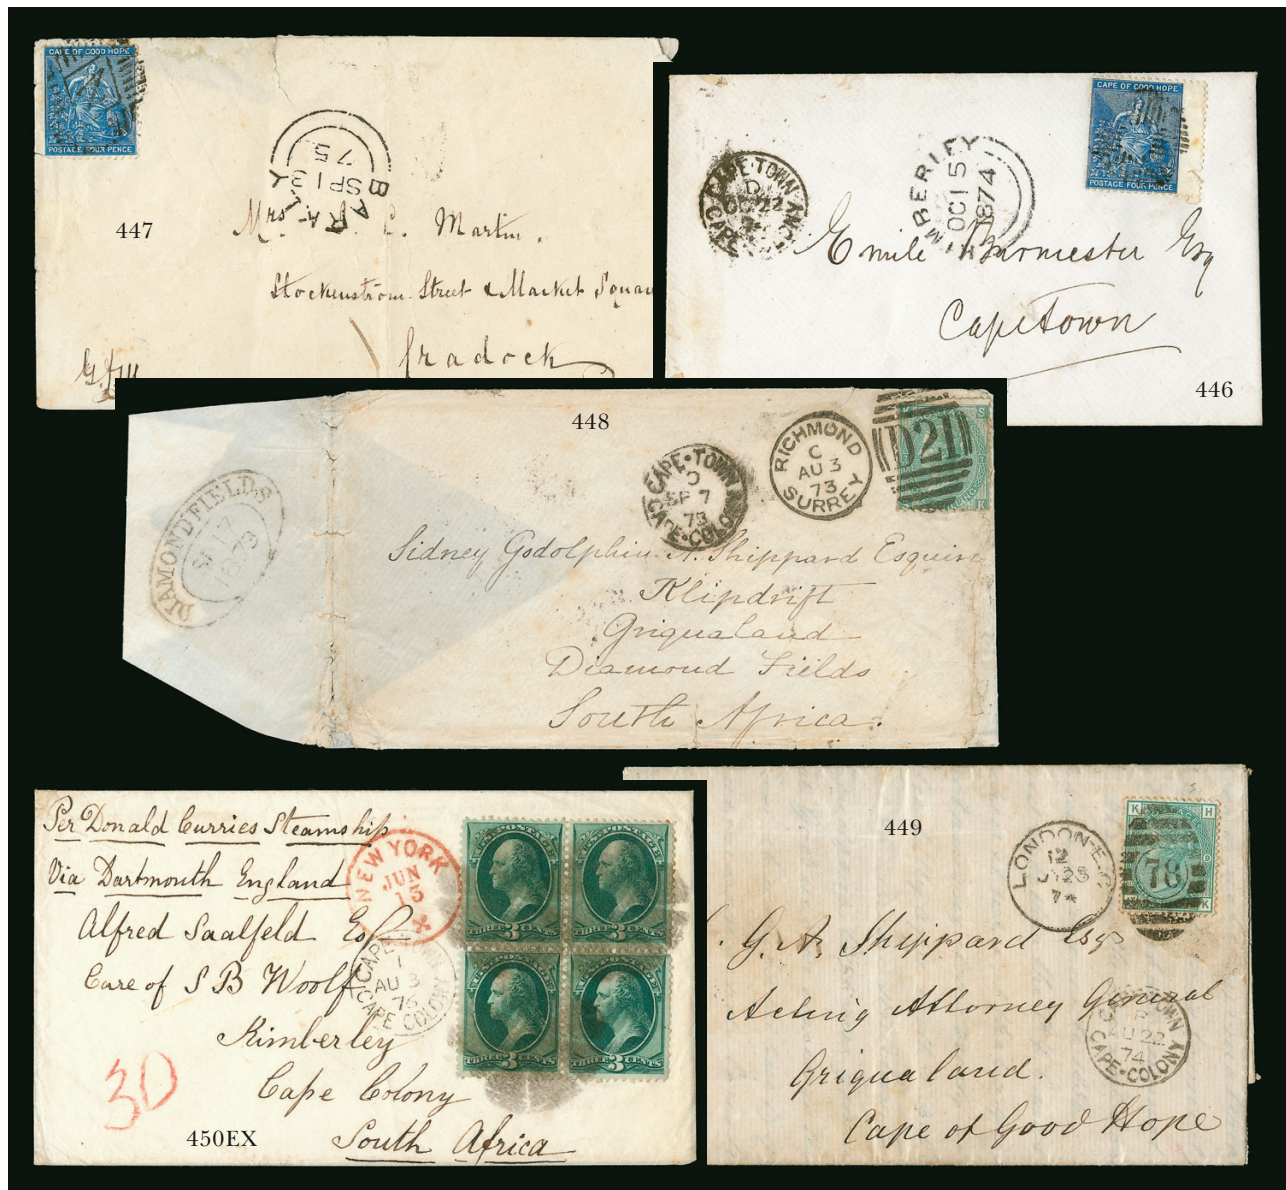 CAPE OF GOOD HOPE
POSTAGE FOUR PENCE
BARKLY
SP 13
75
447
Mrs C. Martin.
Stockenström Street & Market Square
Cradock
CAPE OF GOOD HOPE
POSTAGE FOUR PENCE
CAPE·TOWN
D
OC 22
MBERLEY
OC 15
1874
Emile Burmester Esq
CapeTown
446
448
DIAMONDFIELDS
SP 17
1873
CAPE·TOWN
D
SP 7
73
CAPE·COLONY
RICHMOND
C
AU 3
73
SURREY
D21
S
K
Sidney Godolphin A. Shippard Esquire
Klipdrift
Griqualand
Diamond Fields
South Africa.
Per Donald Curries Steamship
Via Dartmouth England
Alfred Saalfeld Esq
Care of S B Woolf
Kimberley
Cape Colony
South Africa
NEW YORK
JUN
15
CAPE TOWN
1
AU 3
76
CAPE COLONY
U.S. POSTAGE
THREE 3 CENTS
U.S. POSTAGE
THREE 3 CENTS
U.S. POSTAGE
THREE 3 CENTS
U.S. POSTAGE
THREE 3 CENTS
30
450EX
449
LONDON-E.C
12
JY 25
74
K H
78
K
S. G. A. Shippard Esq
Acting Attorney General
Griqualand.
Cape of Good Hope
CAPE TOWN
AU 22
74
CAPE·COLONY